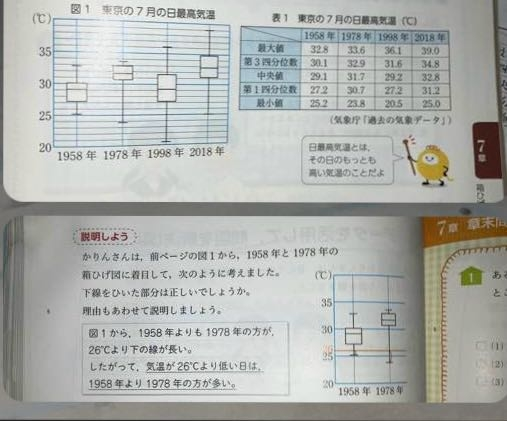 図1 東京の7月の日最高気温
(℃)
35
30
25
20
1958年 1978年 1998年 2018年
表1 東京の7月の日最高気温 (℃)
1958年 1978年 1998年 2018年
最大値 32.8 33.6 36.1 39.0
第3四分位数 30.1 32.9 31.6 34.8
中央値 29.1 31.7 29.2 32.8
第1四分位数 27.2 30.7 27.2 31.2
最小値 25.2 23.8 20.5 25.0
(気象庁「過去の気象データ」)
日最高気温とは、
その日のもっとも
高い気温のことだよ
7章
箱ひ
説明しよう
かりんさんは、前ページの図1から、1958年と1978年の
箱ひげ図に着目して、次のように考えました。
下線をひいた部分は正しいでしょうか。
理由もあわせて説明しましょう。
図1から、1958年よりも1978年の方が、
26℃より下の線が長い。
したがって、気温が26℃より低い日は、
1958年より1978年の方が多い。
(℃)
35
30
26
25
20
1958年 1978年
7章 章末問
1
あ
と
(1)
(2)
(3)